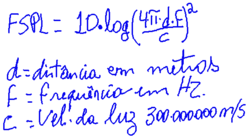 FSPL = 10•log(4π•d•f/c)²
d=distância em metros
f=frequência em Hz
c=Vel. da luz 300.000.000 m/s